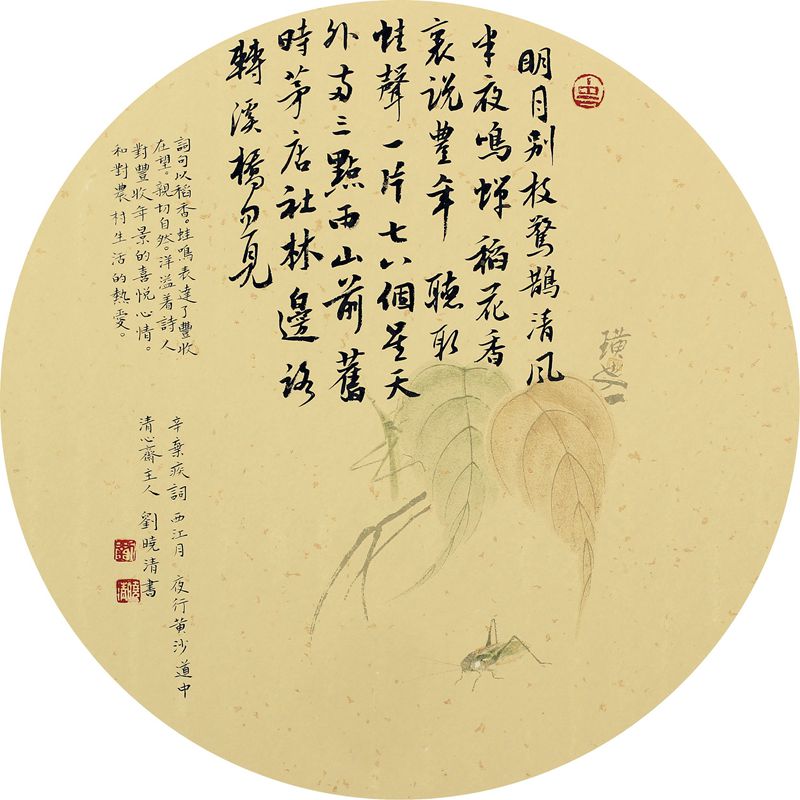 明月别枝驚鵲清风
半夜鳴蟬稻花香
裏说豐年 聽取
蛙聲一片七八個星天
外两三點雨山前舊
時茅店社林邊路
轉溪橋忽見
詞句以稻香。蛙鳴表達了豐收
在望。親切自然。洋溢着詩人
對豐收年景的喜悅心情。
和對農村生活的熱愛。
辛棄疾詞 西江月 夜行黄沙道中
清心齋主人 劉曉清書